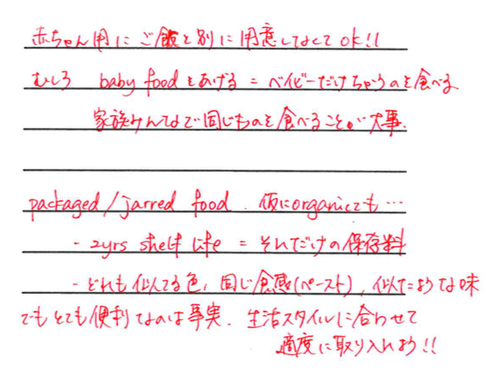 赤ちゃん用にご飯を別に用意しなくてOK!!
むしろ baby foodをあげる = ベイビーだけちがうのを食べる
家族みんなで同じものを食べることが大事.
packaged/jarred food. 仮にorganicでも…
- 2yrs shelf life = それだけの保存料
- どれも似てる色, 同じ食感(ペースト), 似たような味
でもとても便利なのは事実. 生活スタイルに合わせて
適度に取り入れよう!!